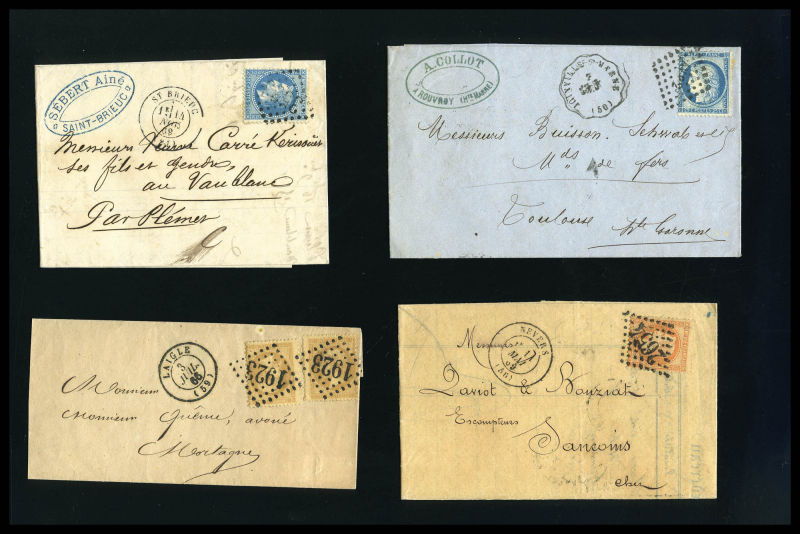 SÉBERT Ainé
SAINT-BRIEUC
ST BRIEUC
Messieurs Carré Kérisouët
ses fils et gendre,
au Vaublanc
Par Plémet
A. COLLOT
A ROUVROY (Hte MARNE)
JOINVILLE-S-MARNE
(50)
Messieurs Buisson
Mds de fers
Toulouse Hte Garonne
LAIGLE
3
JUIL
(59)
1923
1923
Monsieur
Monsieur Guême, avoué
Mortagne
NEVERS
(56)
Messieurs
Daviot & Bouziat
Escompteurs
Sancoins
Cher
2654